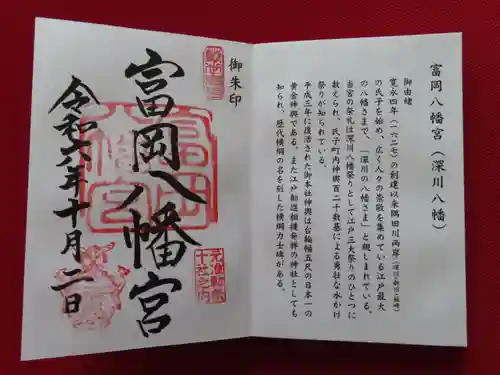 富岡八幡宮（深川八幡）
御由緒
寛永四年（一六二七）の創建以来隅田川両岸（深川・新川・箱崎）
の氏子を始め、広く人々の崇敬を集めている江戸最大
の八幡さまで、「深川の八幡さま」と親しまれている。
当宮の祭礼は深川八幡祭りとして江戸三大祭りのひとつに
数えられ、氏子町内神輿百二十数基による勇壮な水かけ
祭りが知られている。
平成三年に復活された御本社神輿は台輪幅五尺の日本一の
黄金神輿である。また江戸勧進相撲発祥の神社としても
知られ、歴代横綱の名を刻した横綱力士碑がある。
御朱印
富岡八幡宮
令和六年十月二日
富岡八幡宮
元准勅祭
十社之内